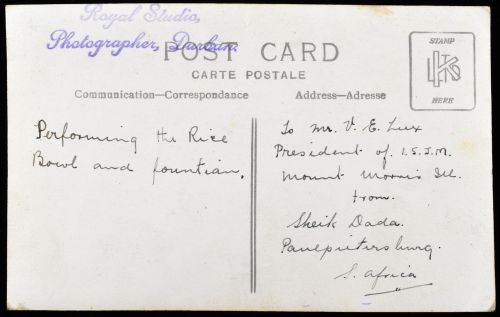 Royal Studio,
Photographer, Durban.
POST CARD
CARTE POSTALE
Communication—Correspondance
Address—Adresse
STAMP
HERE
Performing the Rice
Bowl and fountian.
To Mr. V. E. Lux
President of I.S.J.M.
Mount Morris Ill.
from.
Sheik Dada.
Paulpietersburg.
S. Africa